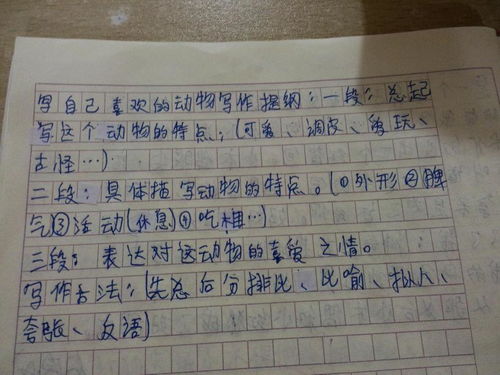 写自己喜欢的动物写作提纲:一段:总起
写这个动物的特点;(可爱、调皮、爱玩、
古怪…)
二段:具体描写动物的特点。(①外形②脾
气③活动(休息)④吃相…)
三段:表达对这动物的喜爱之情。
写作方法:(先总后分排比、比喻、拟人、
夸张、反语)